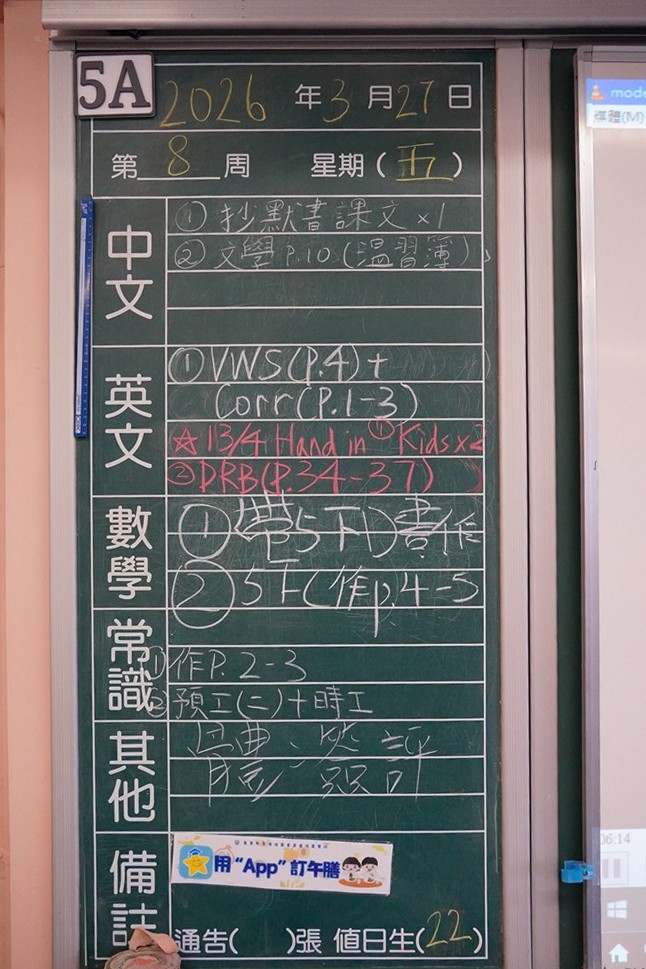 5A
2026年3月27日
第8周 星期(五)
中文
① 抄默書課文×1
② 文學P.10(溫習簿)
英文
①VWS(P.4)+
Corr(P.1-3)
☆13/4 Hand in ①Kids×2
②DRB(P.34-37)
數學
①帶5下D書作
②5下(作p.4-5
常識
①作P.2-3
②預工(二)+時工
其他
備註
用“App”訂午膳
通告( )張 值日生(22)
mode
媒體(M)
06:14